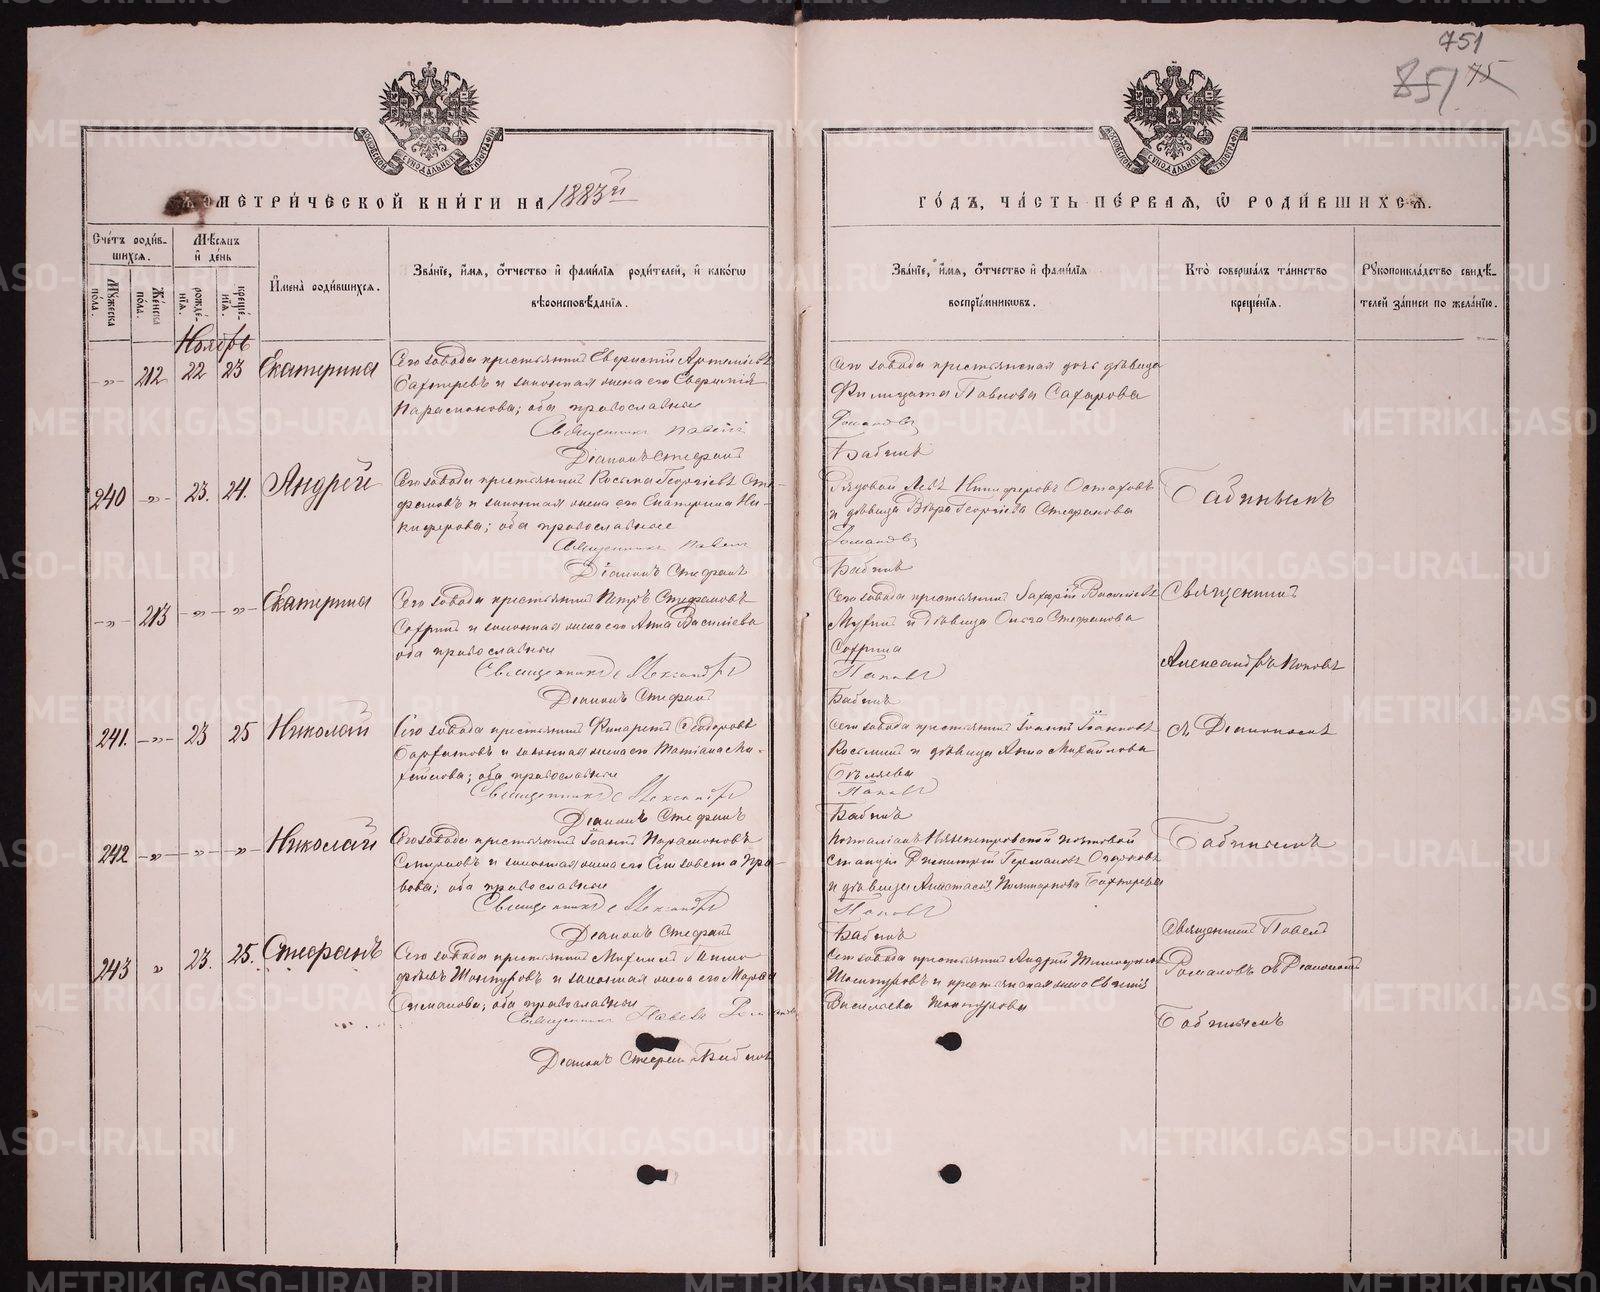 751
851 75
МЕТРИ́ЧЕСКОЙ КНИ́ГИ НА 1883й
ГО́ДЪ, ЧА́СТЬ ПЕ́РВАЯ, Ѡ РОДИ́ВШИХСЯ.
Сче́тъ роди́в-
шихся.
Мꙋ́жеска по́ла.
Же́нска по́ла.
Мѣ́сяцъ и҆ де́нь
рожде́-
нїя.
креще́-
нїя.
И҆мена̀ роди́вшихся.
Зва́нїе, и҆́мя, ѻ҆́тчество и҆ фами́лїя роди́телей, и҆ како́гѡ
вѣроисповѣ́данїя.
Зва́нїе, и҆́мя, ѻ҆́тчество и҆ фами́лїя
воспрїе́мникѡвъ.
Кто̀ соверша́лъ та́инство
креще́нїя.
Рꙋкоприкла́дство свидѣ́-
телей за́писи по жела́нїю.
Ноябрь
-„- 212 22 23 Екатерина
Сего завода крестьянинъ Евористій Артемьевъ
Бахтеревъ и законная жена его Евфимія
Парамонова; оба православные
Священникъ Павелъ
Діаконъ Стефанъ
Сего завода крестьянская дочь дѣвица
Филицата Павлова Сахарова
Романовъ
Бабинъ
240 -„- 23. 24. Андрей
Сего завода крестьянинъ Косьма Георгіевъ Сте-
фановъ и законная жена его Екатерина Ни-
кифорова; оба православные
Священникъ Павелъ
Діаконъ Стефанъ
Рядовой Левъ Никифоровъ Остаховъ
и дѣвица Вѣра Георгіева Стефанова
Романовъ
Бабинъ
Бабинымъ
-„- 213 -„- -„- Екатерина
Сего завода крестьянинъ Петръ Стефановъ
и законная жена его Анна Васильева
оба православные
Священникъ Александръ
Діаконъ Стефанъ
Сего завода крестьянинъ Захарій Васильевъ
и дѣвица Ольга Стефанова
Поповъ
Бабинъ
Священникъ
Александръ Поповъ
241. -„- 23 25 Николай
Сего завода крестьянинъ Ѳеодоровъ
и законная жена его Татіана Ми-
хайлова; оба православные
Священникъ Александръ
Діаконъ Стефанъ
Сего завода крестьянинъ Іоаннъ Іоанновъ
и дѣвица Анна Михайлова
Бѣляева
Поповъ
Бабинъ
съ Діакономъ
242 -„- -„- -„- Николай
Сего завода крестьянинъ Іоаннъ Парамоновъ
и законная жена его Елизавета
оба православные
Священникъ Александръ
Діаконъ Стефанъ
почтовой
станціи Димитрій Германовъ
и дѣвица Анастасія Бахтерева
Поповъ
Бабинъ
Бабинымъ
243 „ 23. 25. Стефанъ
Сего завода крестьянинъ Михаилъ Тимо-
феевъ и законная жена его Марѳа
оба православные
Священникъ Павелъ Романовъ
Діаконъ Стефанъ Бабинъ
Сего завода крестьянинъ Андрей Тимофеевъ
и крестьянская жена
Васильева
Священникъ Павелъ
Романовъ съ Діакономъ
Бабинымъ
METRIKI.GASO-URAL.RU